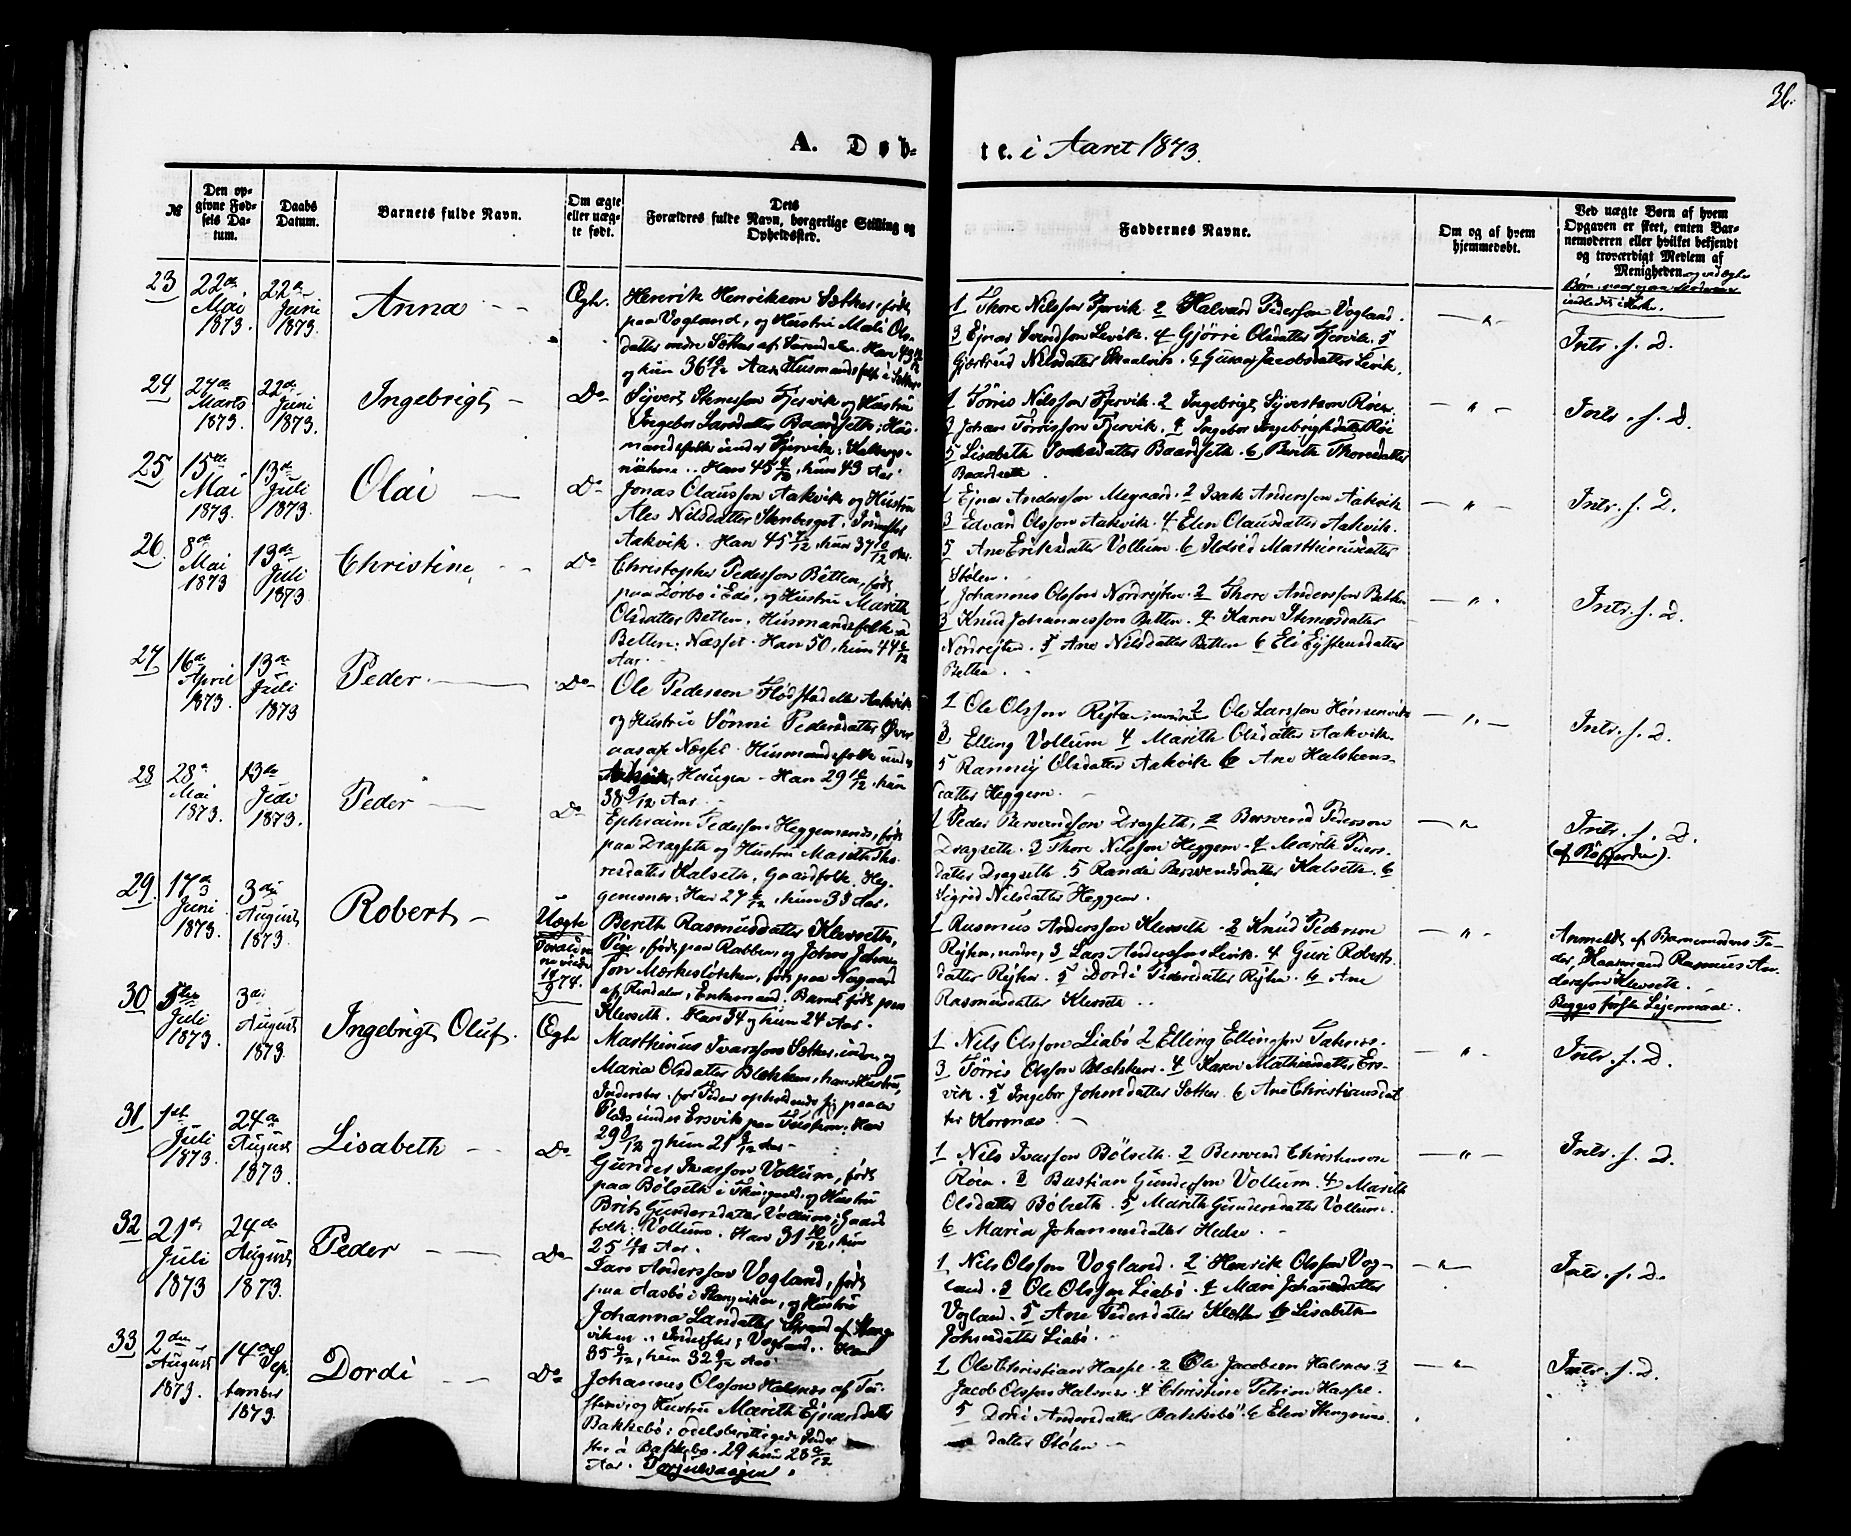 36.
A. Døb-
te. i Aaret 1873.
№
Den op-
givne Fød-
sels Da-
tum.
Daabs
Datum.
Barnets fulde Navn.
Om ægte
eller uæg-
te født.
Dets
Forældres fulde Navn, borgerlige Stilling og
Opholdssted.
Faddernes Navne.
Om og af hvem
hjemmedøbt.
Ved uægte Børn af hvem
Opgaven er skeet, enten Bar-
nemoderen eller hvilket bekjendt
og troværdigt Medlem af
Menigheden
23
22de
Mai
1873.
22de
Juni
1873.
Anna
Ægte.
Henrik Henriksen Sæther, født
paa Vogland, og Hustru Mali Ols-
datter
1 Thore Nilsson Fjervik. 2 Halvard Pederson Vogland.
3 Ejnar Svendson Levik. 4 Gjørri Olsdatter Fjervik. 5
Gjertrud Nilsdatter
Intr. f. D.
24
27de
Marts
1873.
22de
Juni
1873.
Ingebrigt
Do
Syvert Stenesson Fjervik og Hustru
Ingebor Larsdatter Baardseth; Hus-
mandsfolk under Fjervik;
Han 45 4/12, hun 43 Aar.
1 Tørris Nilsson Fjervik. 2 Ingebrigt Syvertson Røen.
3 Johan Tørrisson Fjervik. 4 Ingebor Ingebrigtsdatter
5 Lisabeth datter Baardseth. 6 Berith Thoresdatter
Baardseth
Intr. f. D.
25
15de
Mai
1873.
13de
Juli
1873.
Olai
Do
Jonas Claussøn Aakvik og Hustru
Ales Nilsdatter Stenberget, Inderster
Aakvik. Han 45 hun 37
1 Ejnar Andersson Megaard. 2 Isak Andersson Aakvik
3 Edvard Olsson Aakvik. 4 Elen Clausdatter Aakvik.
5 Ane Eriksdatter Vollum. 6 Ildrid Mathinusdatter
Stølen.
Intr. f. D.
26.
8de
Mai
1873
13de
Juli
1873.
Christine
Do
Christopher Pedersson Betten, født
paa Dorbo i Edø, og Hustru Marith
Olsdatter Betten, Husmandsfolk
Betten; Næsset. Han 50, hun 44
Aar.
1 Johannes Olsson Nordrejten. 2 Thore Andersson Betten
3 Knud Johannesson Betten. 4 Karen
Nordrejten. 5 Ane Nilsdatter Betten 6 Eli Eystensdatter
Betten.
Intr. f. D.
27
16de
April
1873.
13de
Juli
1873
Peder
Do
Ole Pederson Flødstad eller Aakvik
og Hustru Sønni Pedersdatter
Husmandsfolk under
Aakvik, Haugen. Han 29 10/12, hun
38 9/12 Aar.
1 Ole Olsson Rejten, nordre 2 Ole Larsson Honsenvik
3 Elling Vollum 4 Marith Olsdatter Aakvik.
5 Ranney Olsdatter Aakvik 6 Ane Halstens-
datter Heggem.
Intr. f. D.
28
28de
Mai
1873.
13de
Juli
1873.
Peder
Do
Ephraim Pederson Heggemsnes, født
paa Dragseth og Hustru Marith Tho-
resdatter Halseth, Gaardfolk. Heg-
gemsnes. Han 27 hun 38 Aar.
1 Peder Bersvendson Dragseth, 2 Bersvend Pederson
Dragseth. 3 Thore Nilsson Heggem. 4 Marith Peders-
datter Dragseth. 5 Randi Bersvendsdatter Halseth. 6
Sigrid Nilsdatter Heggem.
Intr. f. D.
29.
17de
Juni
1873.
3die
August
1873.
Robert
Uægte
Berith Rasmusdatter Klevseth,
Pige, født paa Rabben, og John John-
son Mærkesløkken, født paa
af Rindalen; Enkemand, Barnet født paa
Klevseth. Han 34 og hun 24 Aar.
1 Rasmus Andersson Klevseth. 2 Knud Pederson
Rejten, nordre, 3 Lars Andersson Levik. 4 Guri Roberts-
datter Rejten. 5 Dordi Pedersdatter Rejten. 6 Ane
Rasmusdatter Klevseth.
Anmeldt af Barnemoderens Fa-
der, Huusmand Rasmus An-
dersson Klevseth.
Begges første Lejermaal.
30
5te
Juli
1873.
3die
August
1873.
Ingebrigt Oluf.
Ægte
Mathinus Ivarsson Sæther, indre, og
Maria Olsdatter Blekken, hans Hustru,
Inderster, for Tiden opholdende sig paa en
Plads under Ersvik paa Tustern. Han
29 9/12 og hun 21 9/12 Aar.
1 Nils Olsson Liabø 2 Elling Ellingson
3 Tørris Olsson Blekken. 4 Karen Mathiasdatter Ers-
vik. 5 Ingebor Johnsdatter Sæther. 6 Ane Christiansdat-
ter Korsnæs.
Intr. f. D.
31
1ste
Juli
1873.
24de
August
1873.
Lisabeth
Do
Gunder Ivarsson Vollum, født
paa Bølseth i og Hustru
Brith Gundersdatter Vollum; Gaard-
folk; Vollum. Han 31 10/12, hun
25 Aar.
1 Nils Ivarsson Bølseth. 2 Bersvend Christenson
Røen. 3 Bastian Gunderson Vollum. 4 Marith
Olsdatter Bølseth. 5 Marith Gundersdatter Vollum.
6 Maria Johannesdatter
Intr. f. D.
32
21de
Juli
1873
24de
August
1873.
Peder
Do
Lars Andersson Vogland, født
paa Aasbø i Stangviken, og Hustru
Johanna Larsdatter Strand af Stang-
viken., Inderster; Vogland. Han
35 9/12, hun 32 Aar.
1 Nils Olsson Vogland. 2 Henrik Olsson Vog-
land. 3 Ole Olsson Liabø. 4 Mari Johannesdatter
Vogland. 5 Ane Pedersdatter 6 Lisabeth
Johnsdatter Liabø.
Intr. f. D.
33
2den
August
1873.
14de Sep-
tember
1873.
Dordi
Do
Johannes Olsson Halsnes af Tu-
stern; og Hustru Marith Ejnarsdatter
Bakkebø; odelsberettigede Inder-
ster á Bakkebø. 29 hun 28
Aar. Torjulvaagen.
1 Ole Christian Haspe. 2 Ole Jacobsen Halsnes. 3
Jacob Olsson Halsnes. 4 Christine Petrine Haspe.
5 Dordi Andersdatter Bakkebø. 6 Elen
datter Stølen
Intr. f. D.